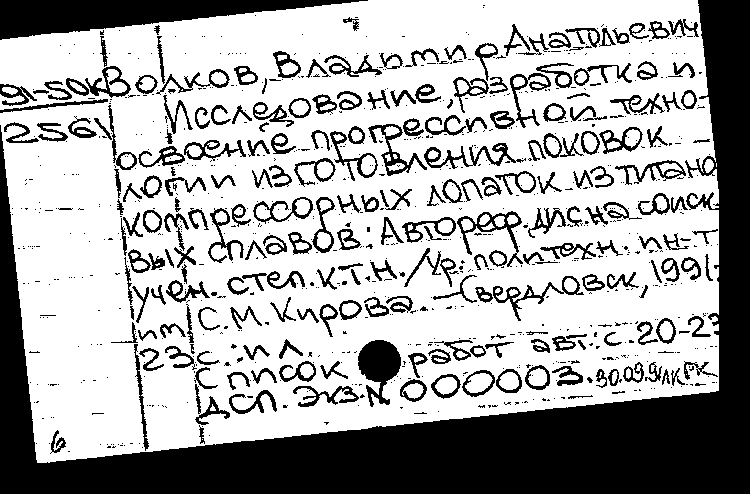 91-50к Волков, Владимир Анатольевич
2561 Исследование, разработка и
освоение прогрессивной техно-
логии изготовления поковок
компрессорных лопаток из титано-
вых сплавов: Автореф. дис. на соиск.
учен. степ. к.т.н. / Ур. политехн. ин-т
им. С.М. Кирова. – Свердловск, 1991.
23 с.: ил.
Список работ авт.: с. 20-23
ДСП. Экз. № 000003. 30.09.91
6